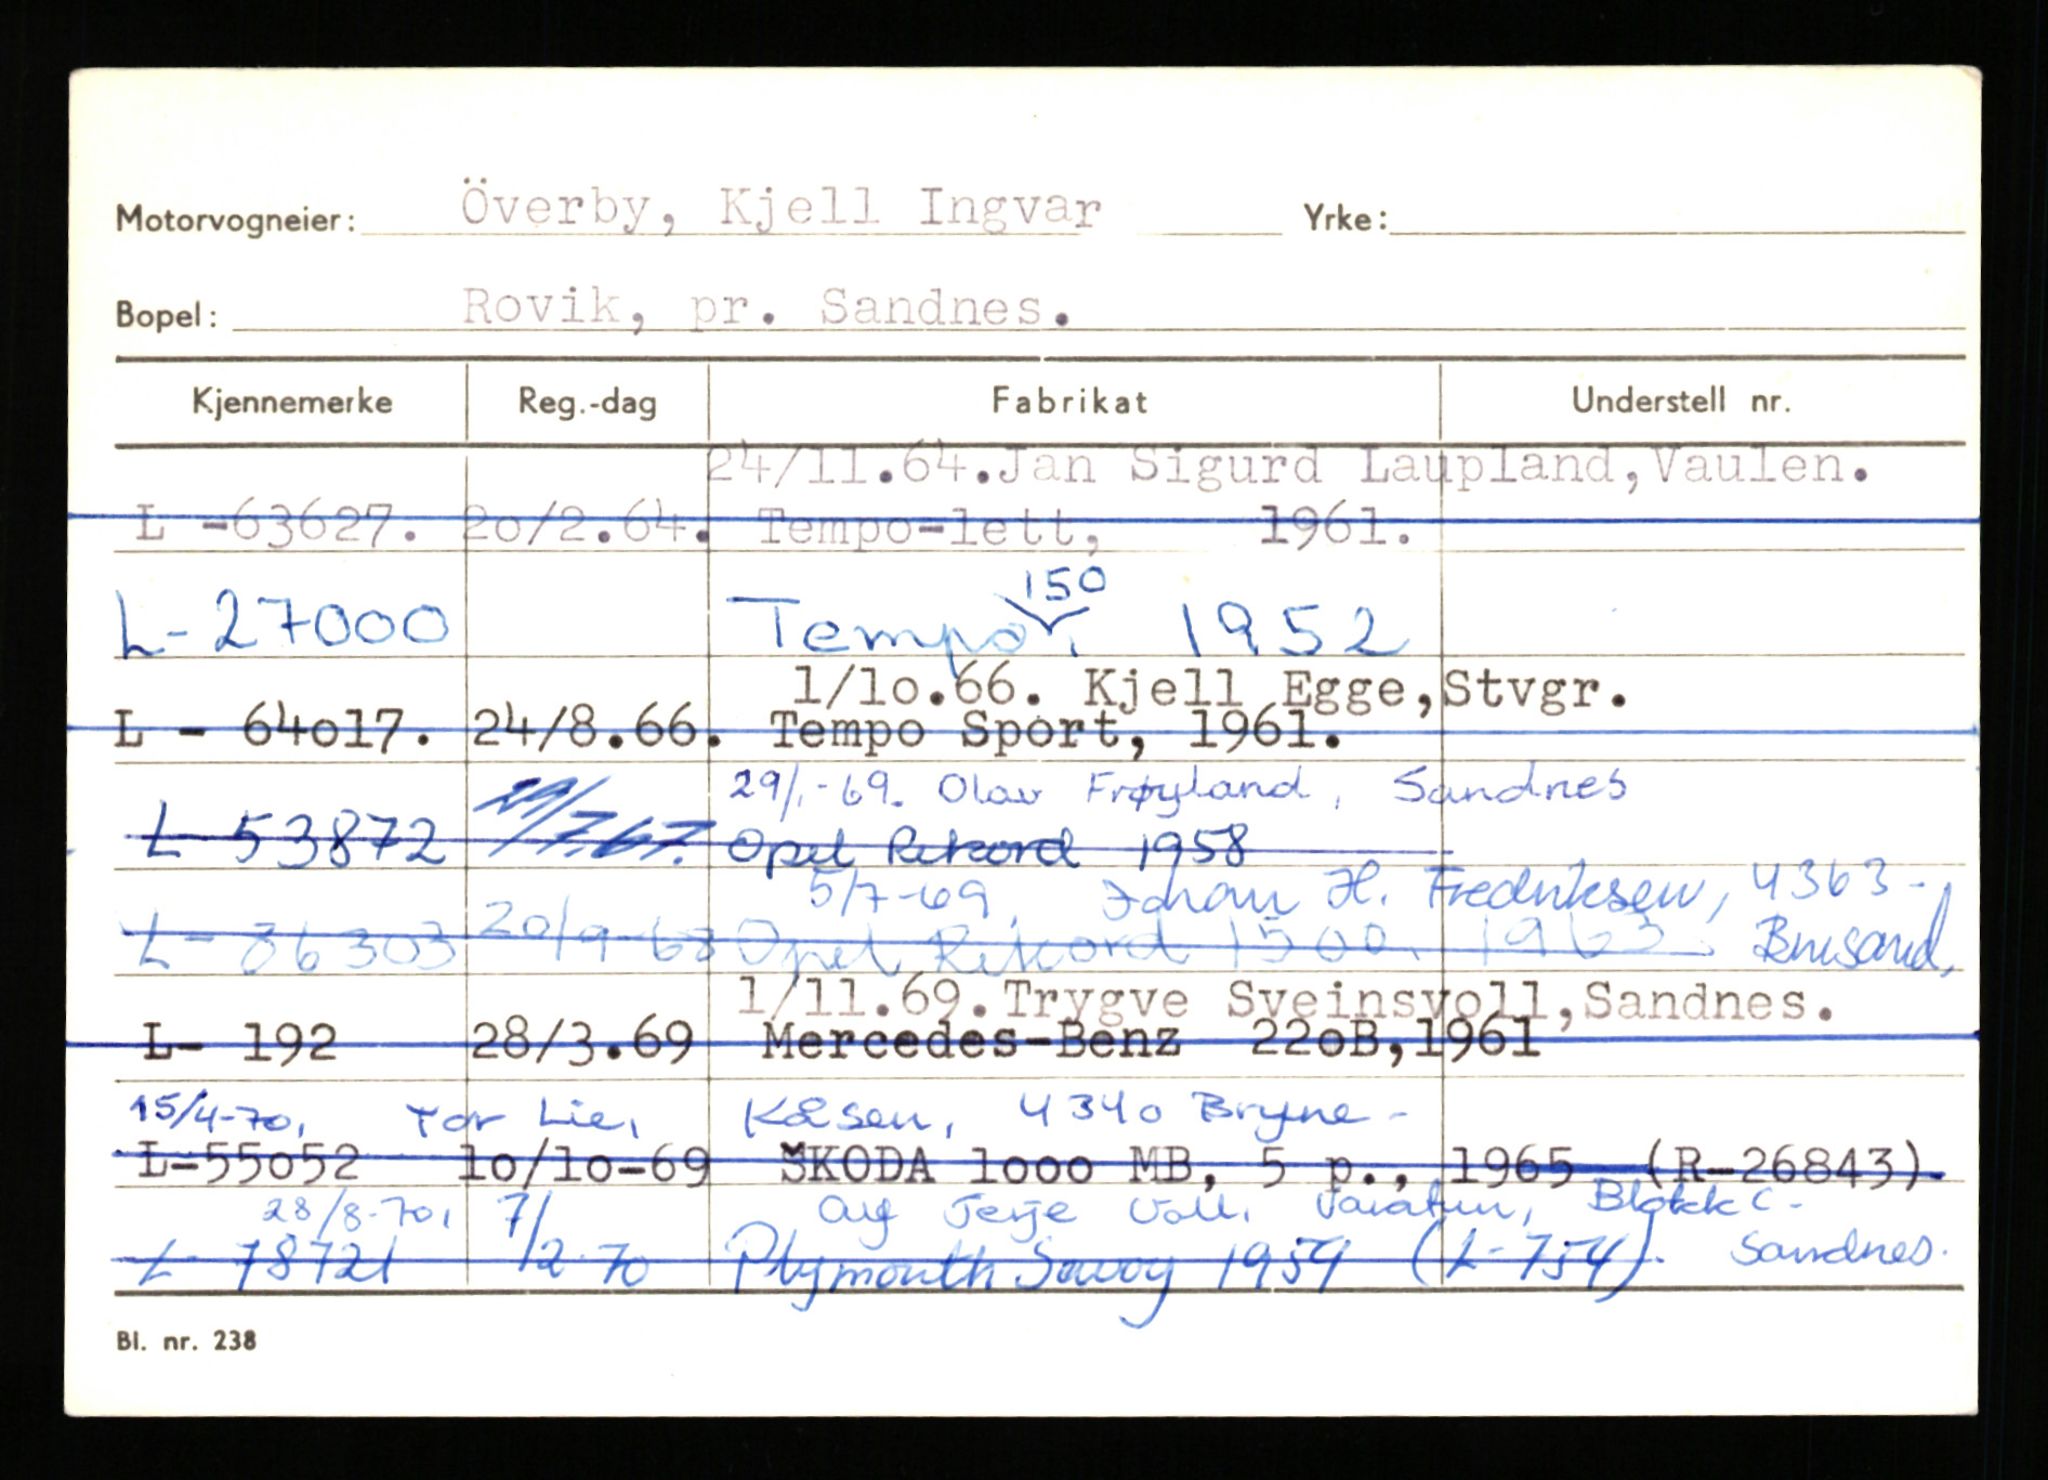 Motorvogneier: Överby, Kjell Ingvar Yrke:
Bopel: Rovik, pr. Sandnes.
Kjennemerke Reg.-dag Fabrikat Understell nr.
24/11.64.Jan Sigurd Laupland,Vaulen.
L -63627. 2o/2.64. Tempo-lett, 1961.
150
L-27000 Tempo, 1952
1/1o.66. Kjell Egge,Stvgr.
L - 64o17. 24/8.66. Tempo Sport, 1961.
29/1-69. Olav Frøyland, Sandnes
L 53872 /7.67. Opel Rekord 1958
5/7-69, Johan H. Fredriksen, 4363-
L- 86303 20/9-68 Opel Rekord 1500, 1963. Brusand,
1/11.69.Trygve Sveinsvoll,Sandnes.
L- 192 28/3.69 Mercedes-Benz 22oB,1961
15/4-70, Tor Lie, Kåsen, 4340 Bryne-
L-55o52 1o/1o-69 ŠKODA 1ooo MB, 5 p., 1965 (R-26843)
28/8-70, Terje Voll, Blokk C-
L- 78721 7/2-70 Plymouth Savoy 1959 (L-754). Sandnes.
Bl. nr. 238